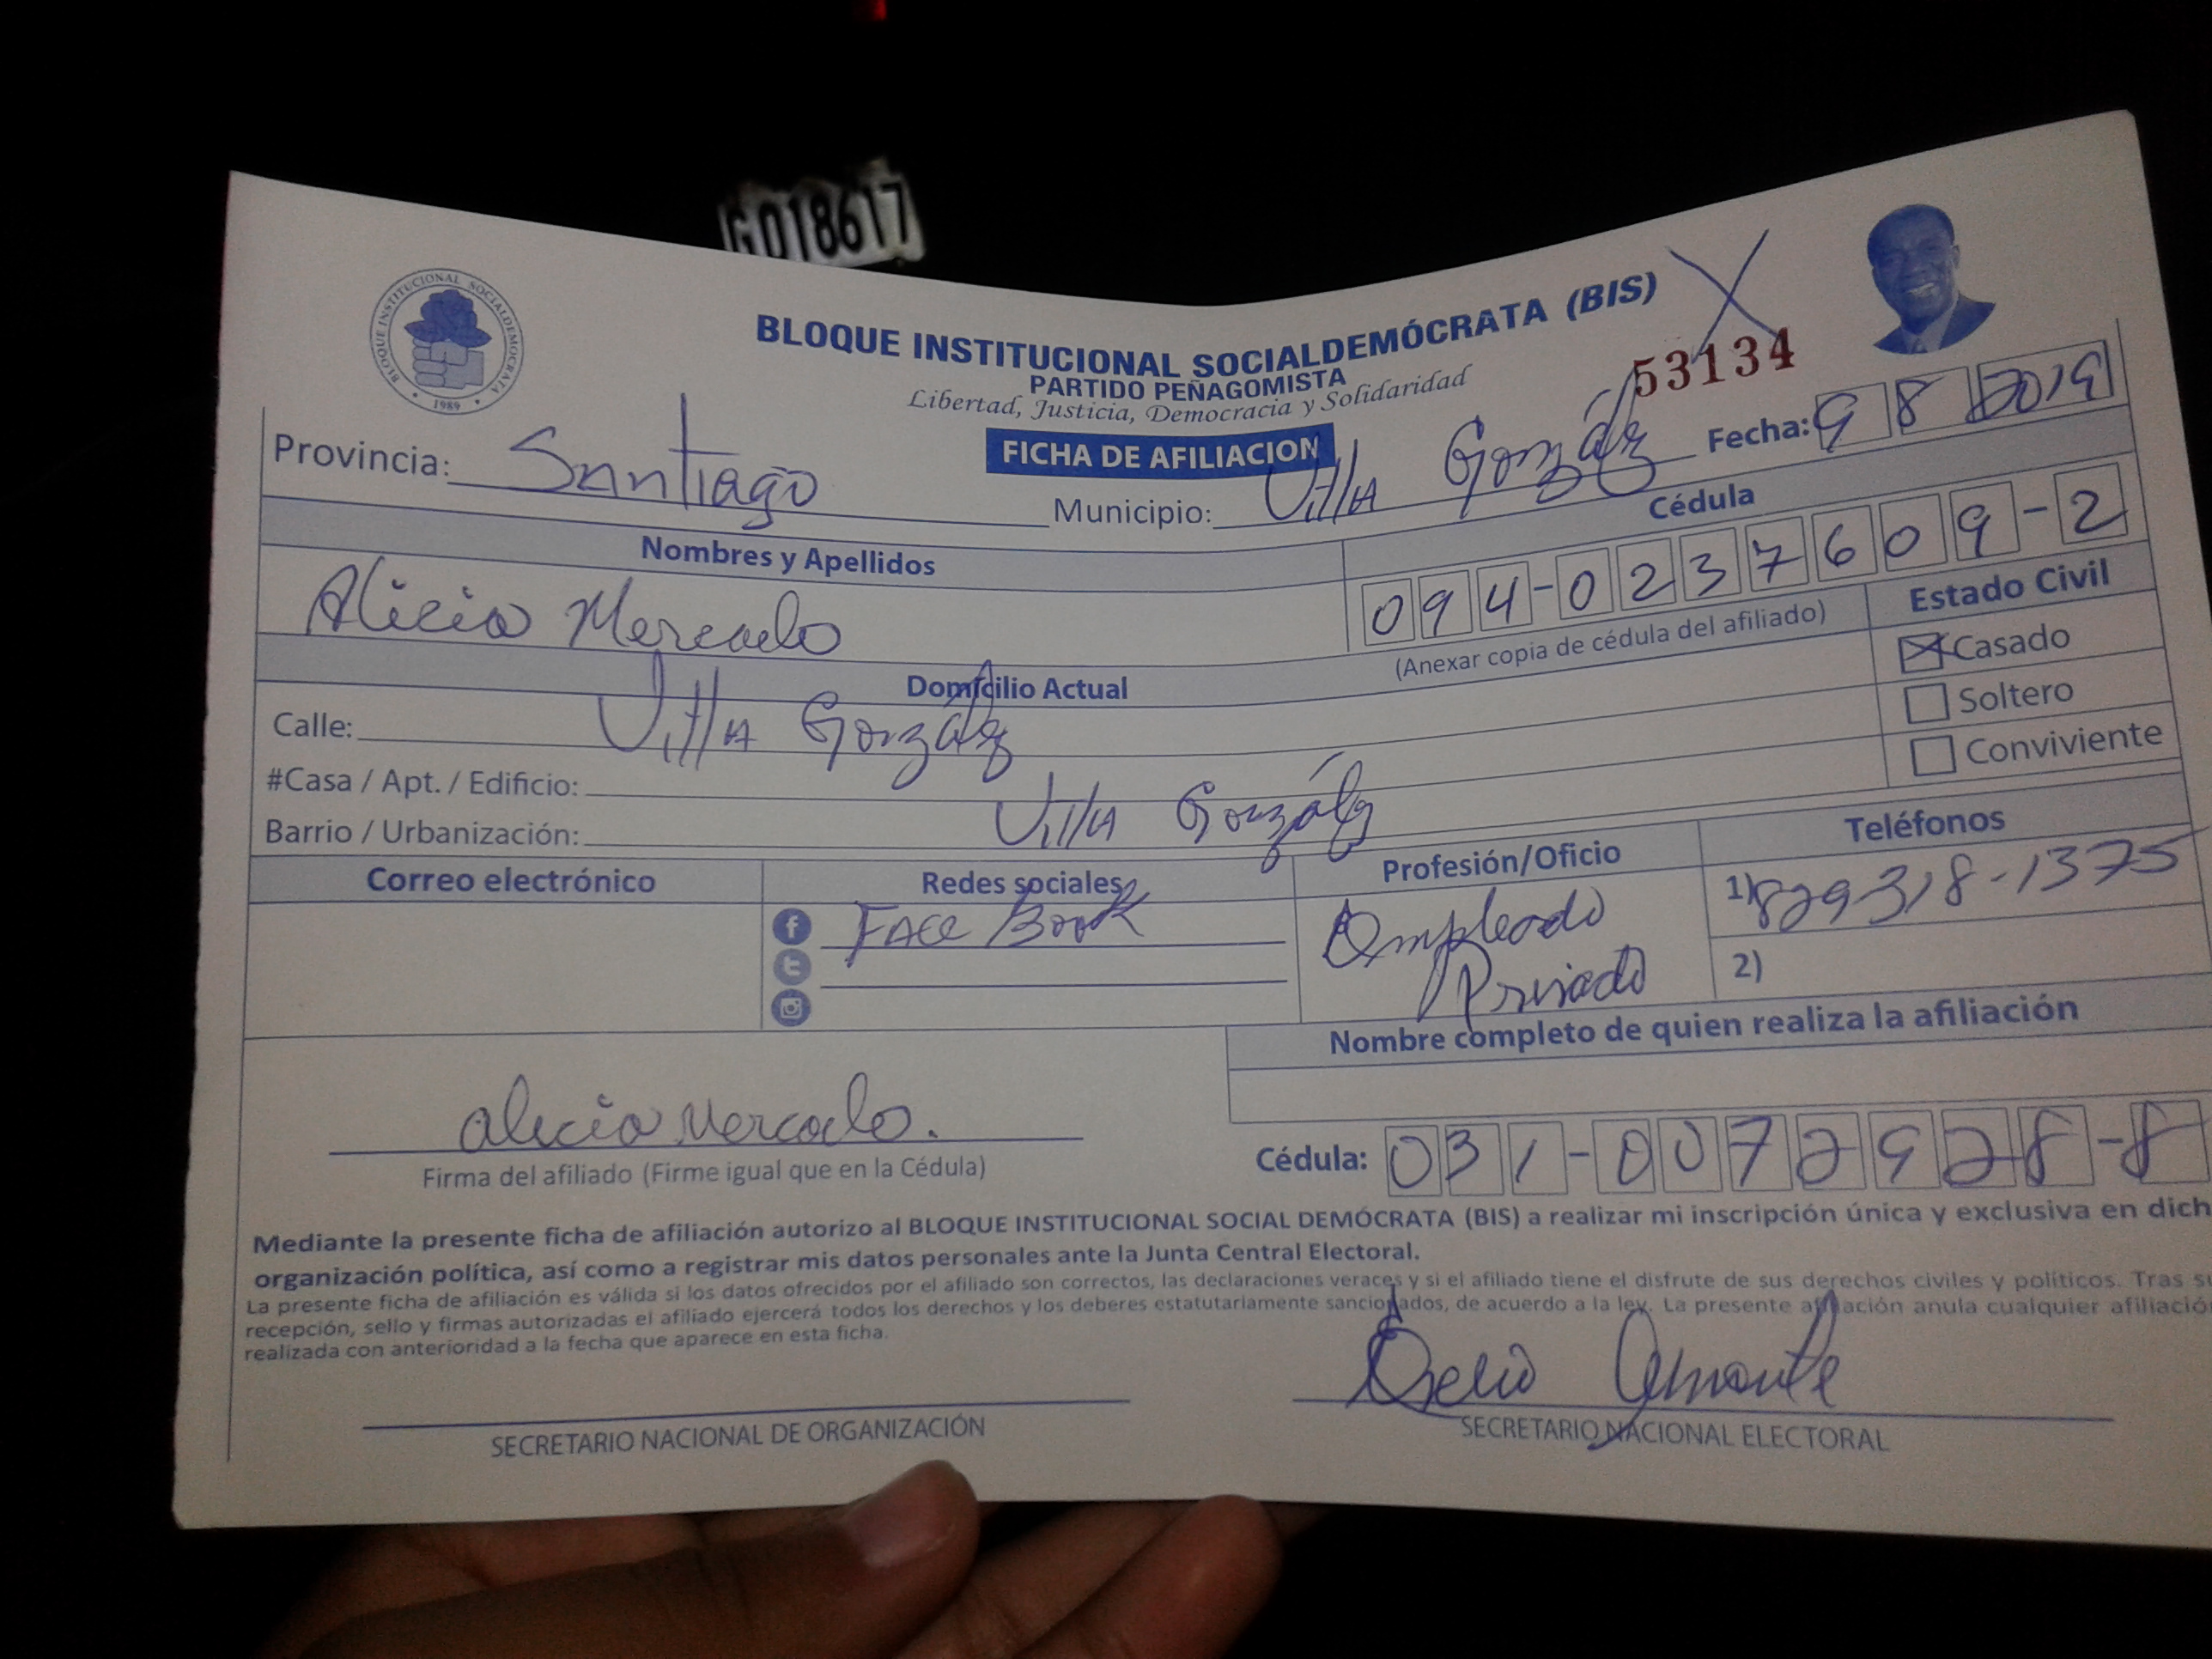 G018617
BLOQUE INSTITUCIONAL SOCIALDEMÓCRATA • 1989 •
BLOQUE INSTITUCIONAL SOCIALDEMÓCRATA (BIS)
PARTIDO PEÑAGOMISTA
Libertad, Justicia, Democracia y Solidaridad
53134
FICHA DE AFILIACION
Fecha: 9 8 2019
Provincia: Santiago Municipio: Villa González
Nombres y Apellidos Cédula
Alicia Mercado 094-0237609-2
(Anexar copia de cédula del afiliado)
Estado Civil
Casado
Soltero
Conviviente
Domicilio Actual
Calle: Villa González
#Casa / Apt. / Edificio:
Barrio / Urbanización: Villa González
Correo electrónico Redes sociales Profesión/Oficio Teléfonos
Face Book Empleado Privado 1) 829318-1375
2)
Nombre completo de quien realiza la afiliación
alicia Mercado.
Firma del afiliado (Firme igual que en la Cédula)
Cédula: 031-0072928-8
Mediante la presente ficha de afiliación autorizo al BLOQUE INSTITUCIONAL SOCIAL DEMÓCRATA (BIS) a realizar mi inscripción única y exclusiva en dich
organización política, así como a registrar mis datos personales ante la Junta Central Electoral.
La presente ficha de afiliación es válida si los datos ofrecidos por el afiliado son correctos, las declaraciones veraces y si el afiliado tiene el disfrute de sus derechos civiles y políticos. Tras su
recepción, sello y firmas autorizadas el afiliado ejercerá todos los derechos y los deberes estatutariamente sancionados, de acuerdo a la ley. La presente afiliación anula cualquier afiliació
realizada con anterioridad a la fecha que aparece en esta ficha.
SECRETARIO NACIONAL DE ORGANIZACIÓN
SECRETARIO NACIONAL ELECTORAL